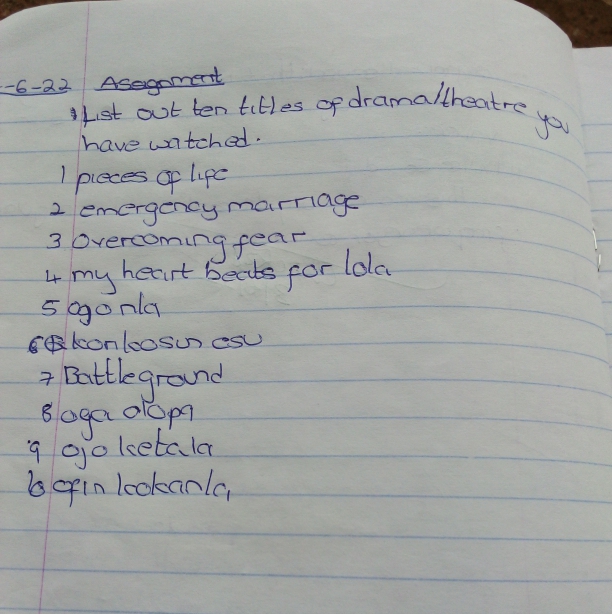 -6-22 Assgnment
List out ten titles of drama/theatre you
have watched.
1 pieces of life
2 emergency marriage
3 Overcoming fear
4 my heart beats for lola
5 ogonla
6 konkosun esu
7 Battleground
8 oga olopa
9 ojo ketala
10 ofin kokanla